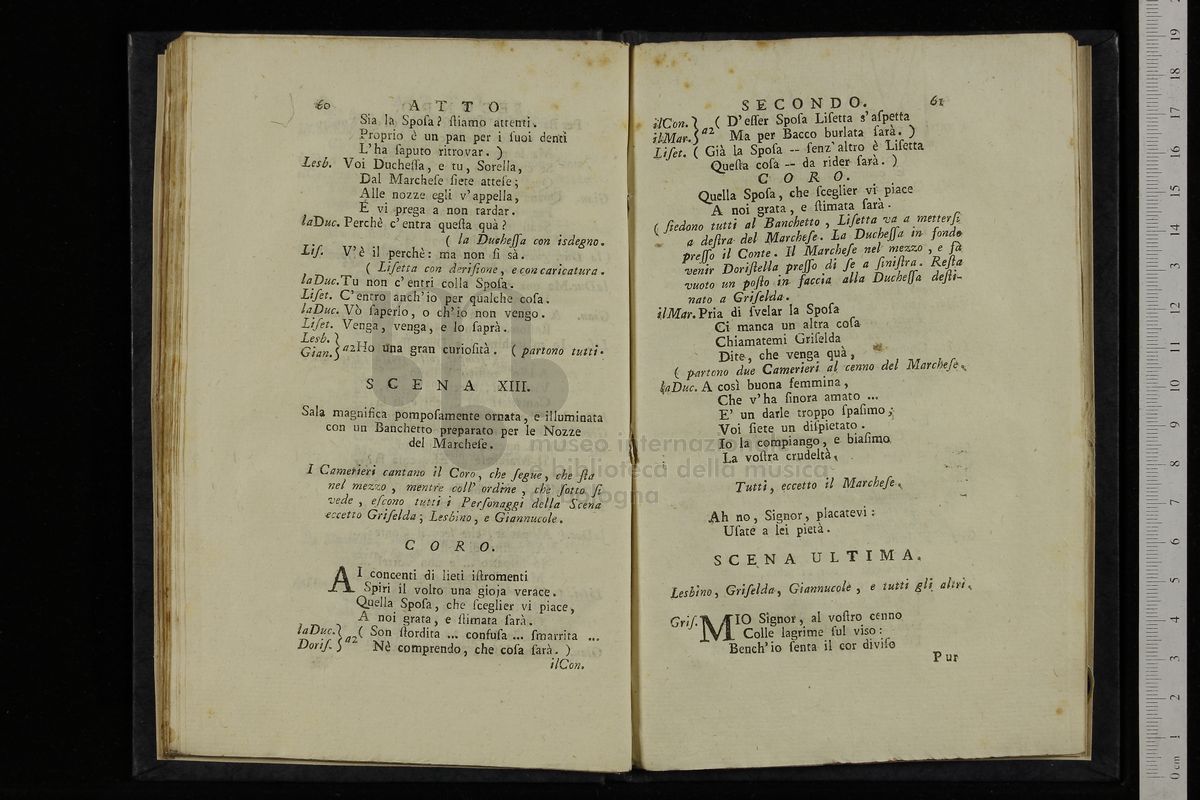 60 ATTO
Sia la Sposa? ſtiamo attenti.
Proprio è un pan per i ſuoi denti
L'ha ſaputo ritrovar. )
Lesb. Voi Ducheſſa, e tu, Sorella,
Dal Marcheſe ſiete atteſe;
Alle nozze egli v'appella,
E vi prega a non tardar.
laDuc. Perchè c'entra queſta quà?
( la Ducheſſa con isdegno.
Liſ. V'è il perchè: ma non ſi sà.
( Liſetta con deriſione, e con caricatura.
laDuc. Tu non c'entri colla Spoſa.
Liſet. C'entro anch'io per qualche coſa.
laDuc. Vò ſaperlo, o ch'io non vengo.
Liſet. Venga, venga, e lo ſaprà.
Lesb. }
Gian. } a2 Ho una gran curioſità. ( partono tutti.
SCENA XIII.
Sala magnifica pompoſamente ornata, e illuminata
con un Banchetto preparato per le Nozze
del Marcheſe.
I Camerieri cantano il Coro, che ſegue, che ſta
nel mezzo, mentre coll' ordine, che ſotto ſi
vede, eſcono tutti i Perſonaggi della Scena
eccetto Griſelda; Lesbino, e Giannucole.
CORO.
AI concenti di lieti iſtromenti
Spiri il volto una gioja verace.
Quella Spoſa, che ſceglier vi piace,
A noi grata, e ſtimata ſarà.
laDuc. } a2 ( Son ſtordita ... confuſa ... ſmarrita ...
Doriſ. } Nè comprendo, che coſa ſarà. )
ilCon.
SECONDO. 61
ilCon. } a2 ( D'eſſer Spoſa Liſetta s'aſpetta
ilMar. } Ma per Bacco burlata ſarà. )
Liſet. ( Già la Spoſa -- ſenz'altro è Liſetta
Queſta coſa -- da rider ſarà. )
CORO.
Quella Spoſa, che ſceglier vi piace
A noi grata, e ſtimata ſarà.
( ſiedono tutti al Banchetto, Liſetta va a metterſi
a deſtra del Marcheſe. La Ducheſſa in fondo
preſſo il Conte. Il Marcheſe nel mezzo, e fà
venir Doriſtella preſſo di ſe a ſiniſtra. Reſta
vuoto un poſto in faccia alla Ducheſſa deſti-
nato a Griſelda.
ilMar. Pria di ſvelar la Spoſa
Ci manca un altra coſa
Chiamatemi Griſelda
Dite, che venga quà,
( partono due Camerieri al cenno del Marcheſe.
laDuc. A così buona femmina,
Che v'ha ſinora amato ...
E' un darle troppo ſpaſimo;
Voi ſiete un diſpietato.
Io la compiango, e biaſimo
La voſtra crudeltà.
Tutti, eccetto il Marcheſe.
Ah no, Signor, placatevi:
Uſate a lei pietà.
SCENA ULTIMA.
Lesbino, Griſelda, Giannucole, e tutti gli altri.
Griſ. MIO Signor, al voſtro cenno
Colle lagrime ſul viſo:
Bench'io ſenta il cor diviſo
Pur
museo internazionale
e biblioteca della musica
bologna
0 cm 1 2 3 4 5 6 7 8 9 10 11 12 13 14 15 16 17 18 19